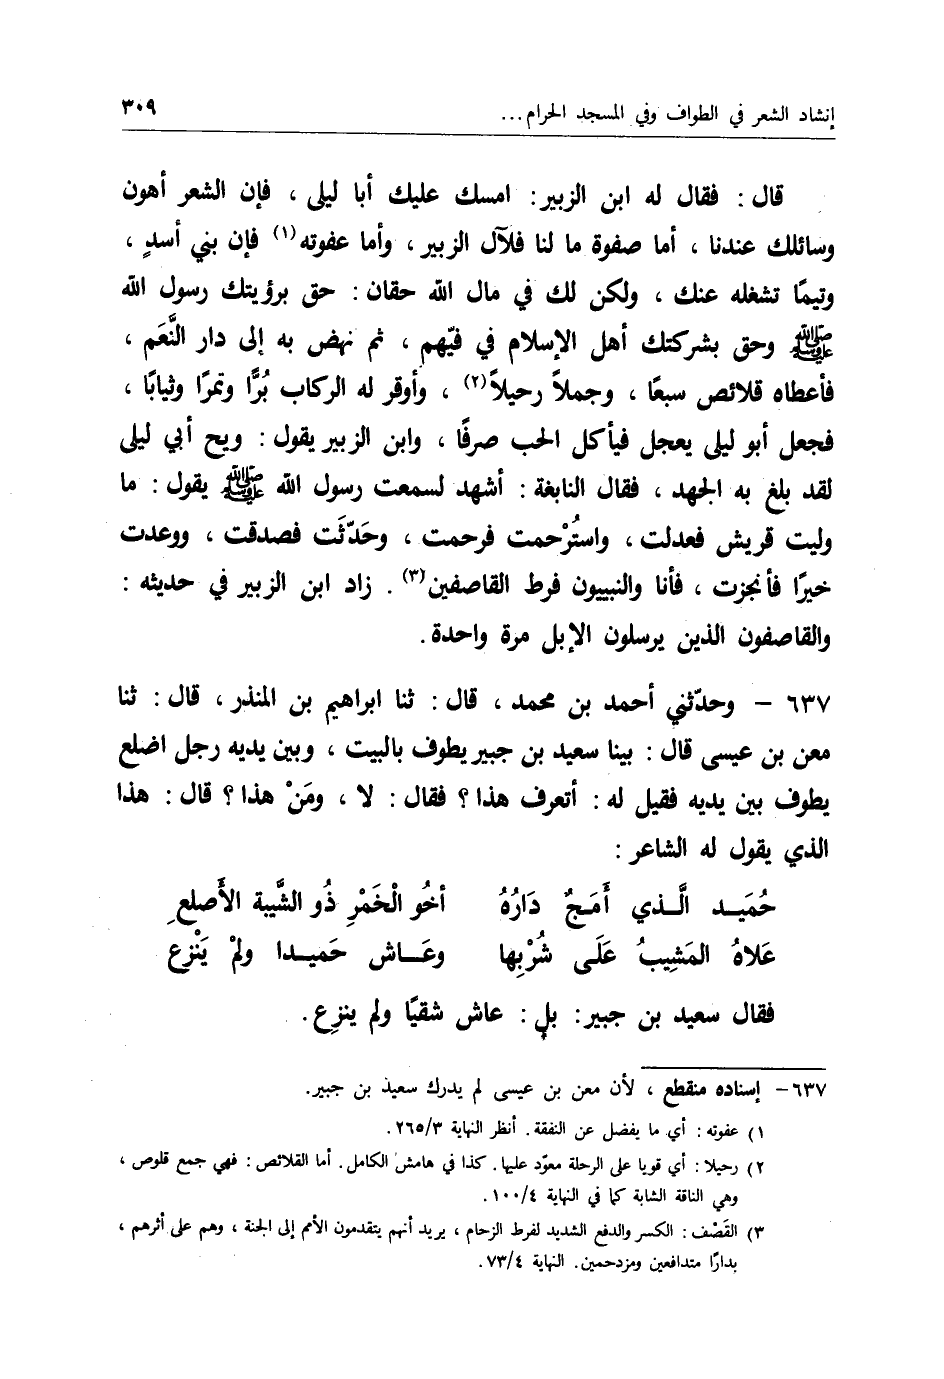 إنشاد الشعر في الطواف وفي المسجد الحرام ... ٣٠٩
قال : فقال له ابن الزبير : امسك عليك أبا ليلى ، فإن الشعر أهون
وسائلك عندنا ، أما صفوة ما لنا فلآل الزبير ، وأما عفوته (١) فإن بني أسدٍ ،
وتيمًا تشغله عنك ، ولكن لك في مال الله حقان : حق برؤيتك رسول الله
ﷺ وحق بشركتك أهل الإسلام في فيّهم ، ثم نهض به إلى دار النَّعَم ،
فأعطاه قلائص سبعًا ، وجملاً رحيلاً (٢) ، وأوقر له الركاب بُرًّا وتمرًا وثيابًا ،
فجعل أبو ليلى يعجل فيأكل الحب صرفًا ، وابن الزبير يقول : ويح أبي ليلى
لقد بلغ به الجهد ، فقال النابغة : أشهد لسمعت رسول الله ﷺ يقول : ما
وليت قريش فعدلت ، واستُرْحمت فرحمت ، وحَدّثَت فصدقت ، ووعدت
خيرًا فأنجزت ، فأنا والنبييون فرط القاصفين (٣) . زاد ابن الزبير في حديثه :
والقاصفون الذين يرسلون الإبل مرة واحدة .
٦٣٧ – وحدّثني أحمد بن محمد ، قال : ثنا ابراهيم بن المنذر ، قال : ثنا
معن بن عيسى قال : بينا سعيد بن جبير يطوف بالبيت ، وبين يديه رجل اضلع
يطوف بين يديه فقيل له : أتعرف هذا ؟ فقال : لا ، ومَنْ هذا ؟ قال : هذا
الذي يقول له الشاعر :
حُمَيـد الَّـذي أَمَـجٌ دَارُهُ أخُو الْخَمْرِ ذُو الشَّيبة الأَصلعِ
عَلاهُ المَشِيبُ عَلَـى شُرْبِها وعَـاش حَميـدا ولمْ يَنْزع
فقال سعيد بن جبير : بل : عاش شقيًا ولم ينزِع .
٦٣٧ – إسناده منقطع ، لأن معن بن عيسى لم يدرك سعيد بن جبير .
١) عفوته : أي ما يفضل عن النفقة . أنظر النهاية ٢٦٥/٣ .
٢) رحيلا : أي قويا على الرحلة معوّد عليها . كذا في هامش الكامل . أما القلائص : فهي جمع قلوص ،
وهي الناقة الشابة كما في النهاية ١٠٠/٤ .
٣) القَصْف : الكسر والدفع الشديد لفرط الزحام ، يريد أنهم يتقدمون الأمم إلى الجنة ، وهم على أثرهم ،
بدارًا متدافعين ومزدحمين . النهاية ٧٣/٤ .